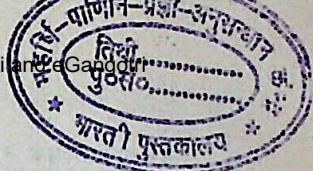 महर्षि-पाणिनि-प्रज्ञा-अनुसन्धान
iland eGangotri
तिथी..............
पु०सं०..............
भारती पुस्तकालय